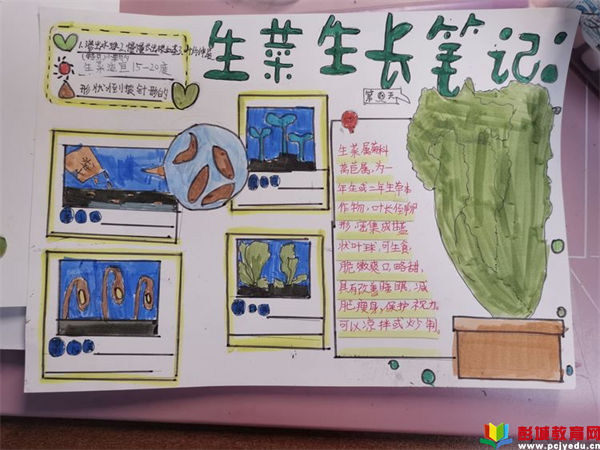 生菜生长笔记
生菜适宜15-20度
第四天
生菜属菊科
莴苣属,为一
年生或二年生草本
作物,叶长倒卵
形,密集成甘蓝
状叶球,可生食,
脆嫩爽口,略甜,
具有改善睡眠,减
肥瘦身,保护视力,
可以凉拌或炒制。
彭城教育网
www.pcjyedu.cn